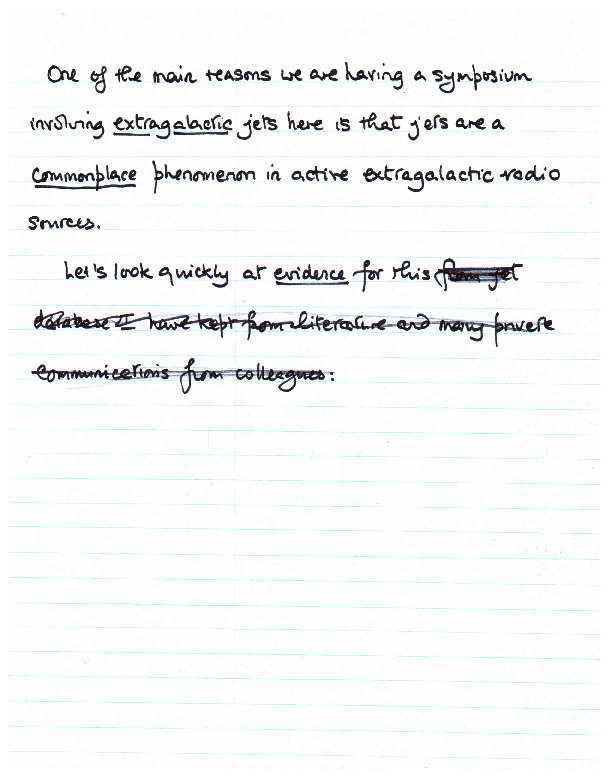 One of the main reasons we are having a symposium
involving extragalactic jets here is that jets are a
commonplace phenomenon in active extragalactic radio
sources.
Let's look quickly at evidence for this from jet
database I have kept from literature and many private
communications from colleagues: